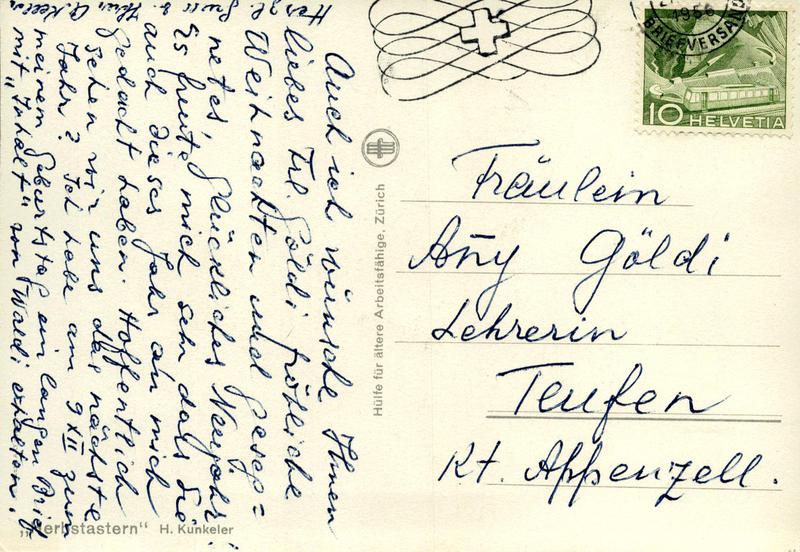 Auch ich wünsche Ihnen
liebes Frl. Göldi fröhliche
Weihnachten und geseg=
netes, glückliches Neujahr!
Es freute mich sehr dass Sie
auch dieses Jahr an mich
gedacht haben. Hoffentlich
sehen wir uns das nächste
Jahr? Ich habe am 9 XII zum
meinem Geburtstag ein langen Brief
mit "Inhalt" von Waldi erhalten.
Herzl. Gruss
"Herbstastern" H. Kunkeler
Hülfe für ältere Arbeitsfähige, Zürich
1956
BRIEFVERSAND
10 HELVETIA
Fräulein
Any Göldi
Lehrerin
Teufen
Kt. Appenzell.